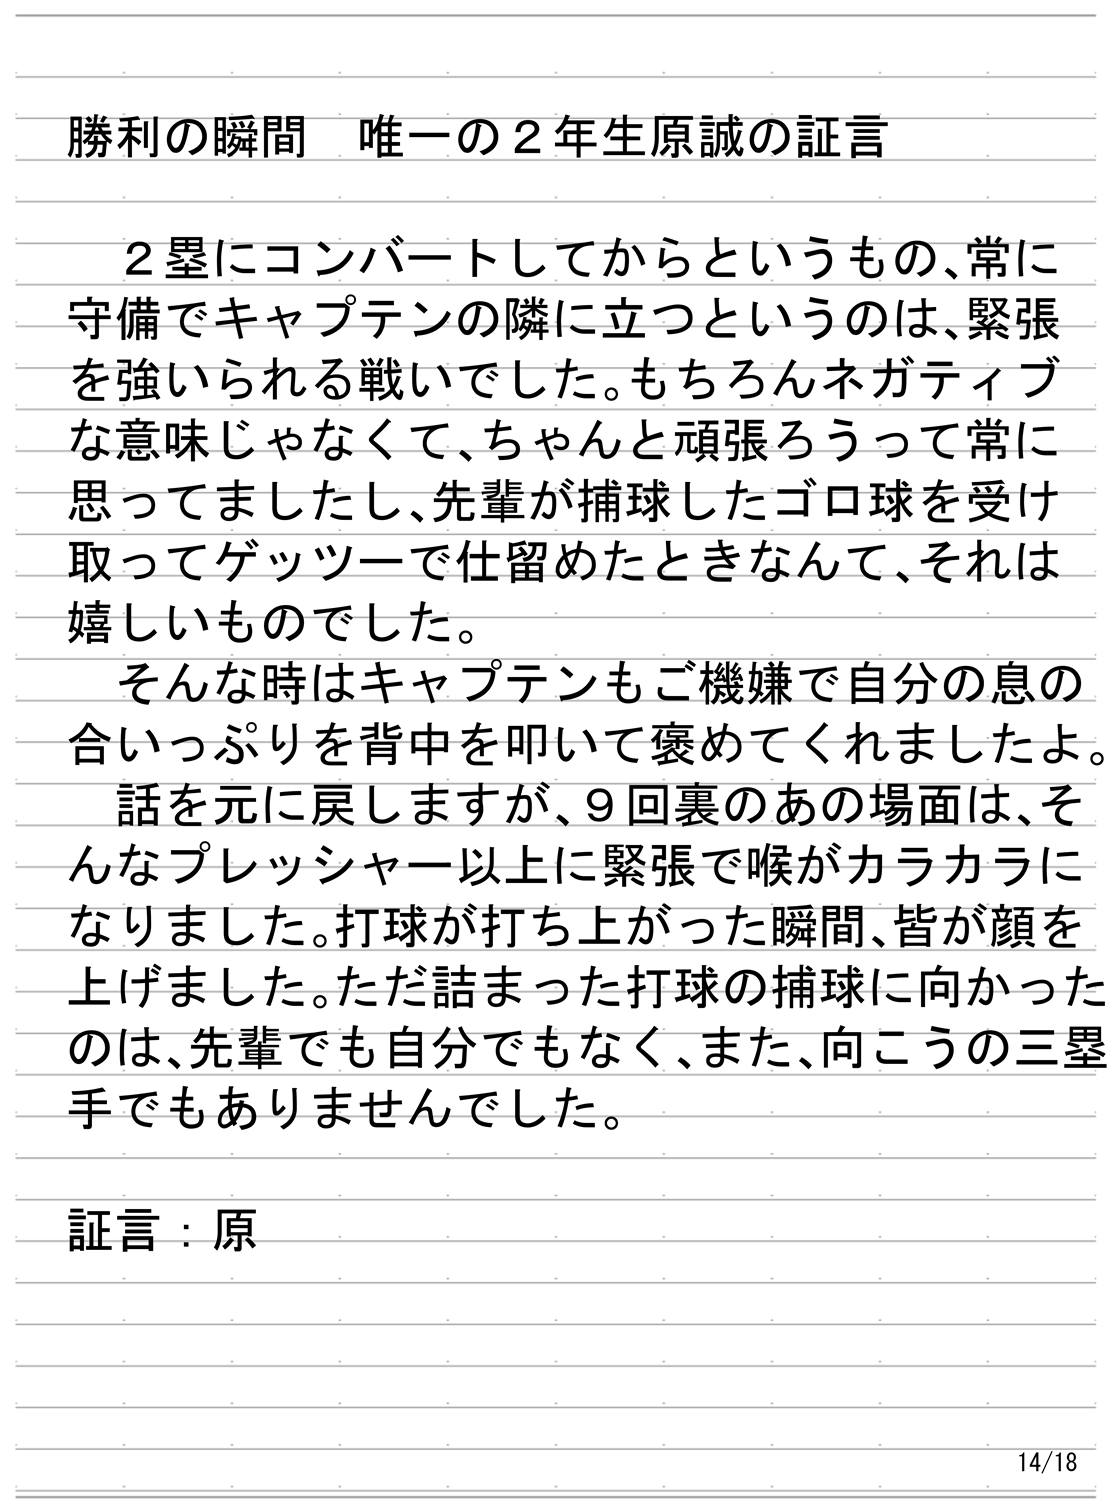 勝利の瞬間　唯一の２年生原誠の証言
　２塁にコンバートしてからというもの、常に
守備でキャプテンの隣に立つというのは、緊張
を強いられる戦いでした。もちろんネガティブ
な意味じゃなくて、ちゃんと頑張ろうって常に
思ってましたし、先輩が捕球したゴロ球を受け
取ってゲッツーで仕留めたときなんて、それは
嬉しいものでした。
　そんな時はキャプテンもご機嫌で自分の息の
合いっぷりを背中を叩いて褒めてくれましたよ。
　話を元に戻しますが、９回裏のあの場面は、そ
んなプレッシャー以上に緊張で喉がカラカラに
なりました。打球が打ち上がった瞬間、皆が顔を
上げました。ただ詰まった打球の捕球に向かった
のは、先輩でも自分でもなく、また、向こうの三塁
手でもありませんでした。
証言：原
14/18